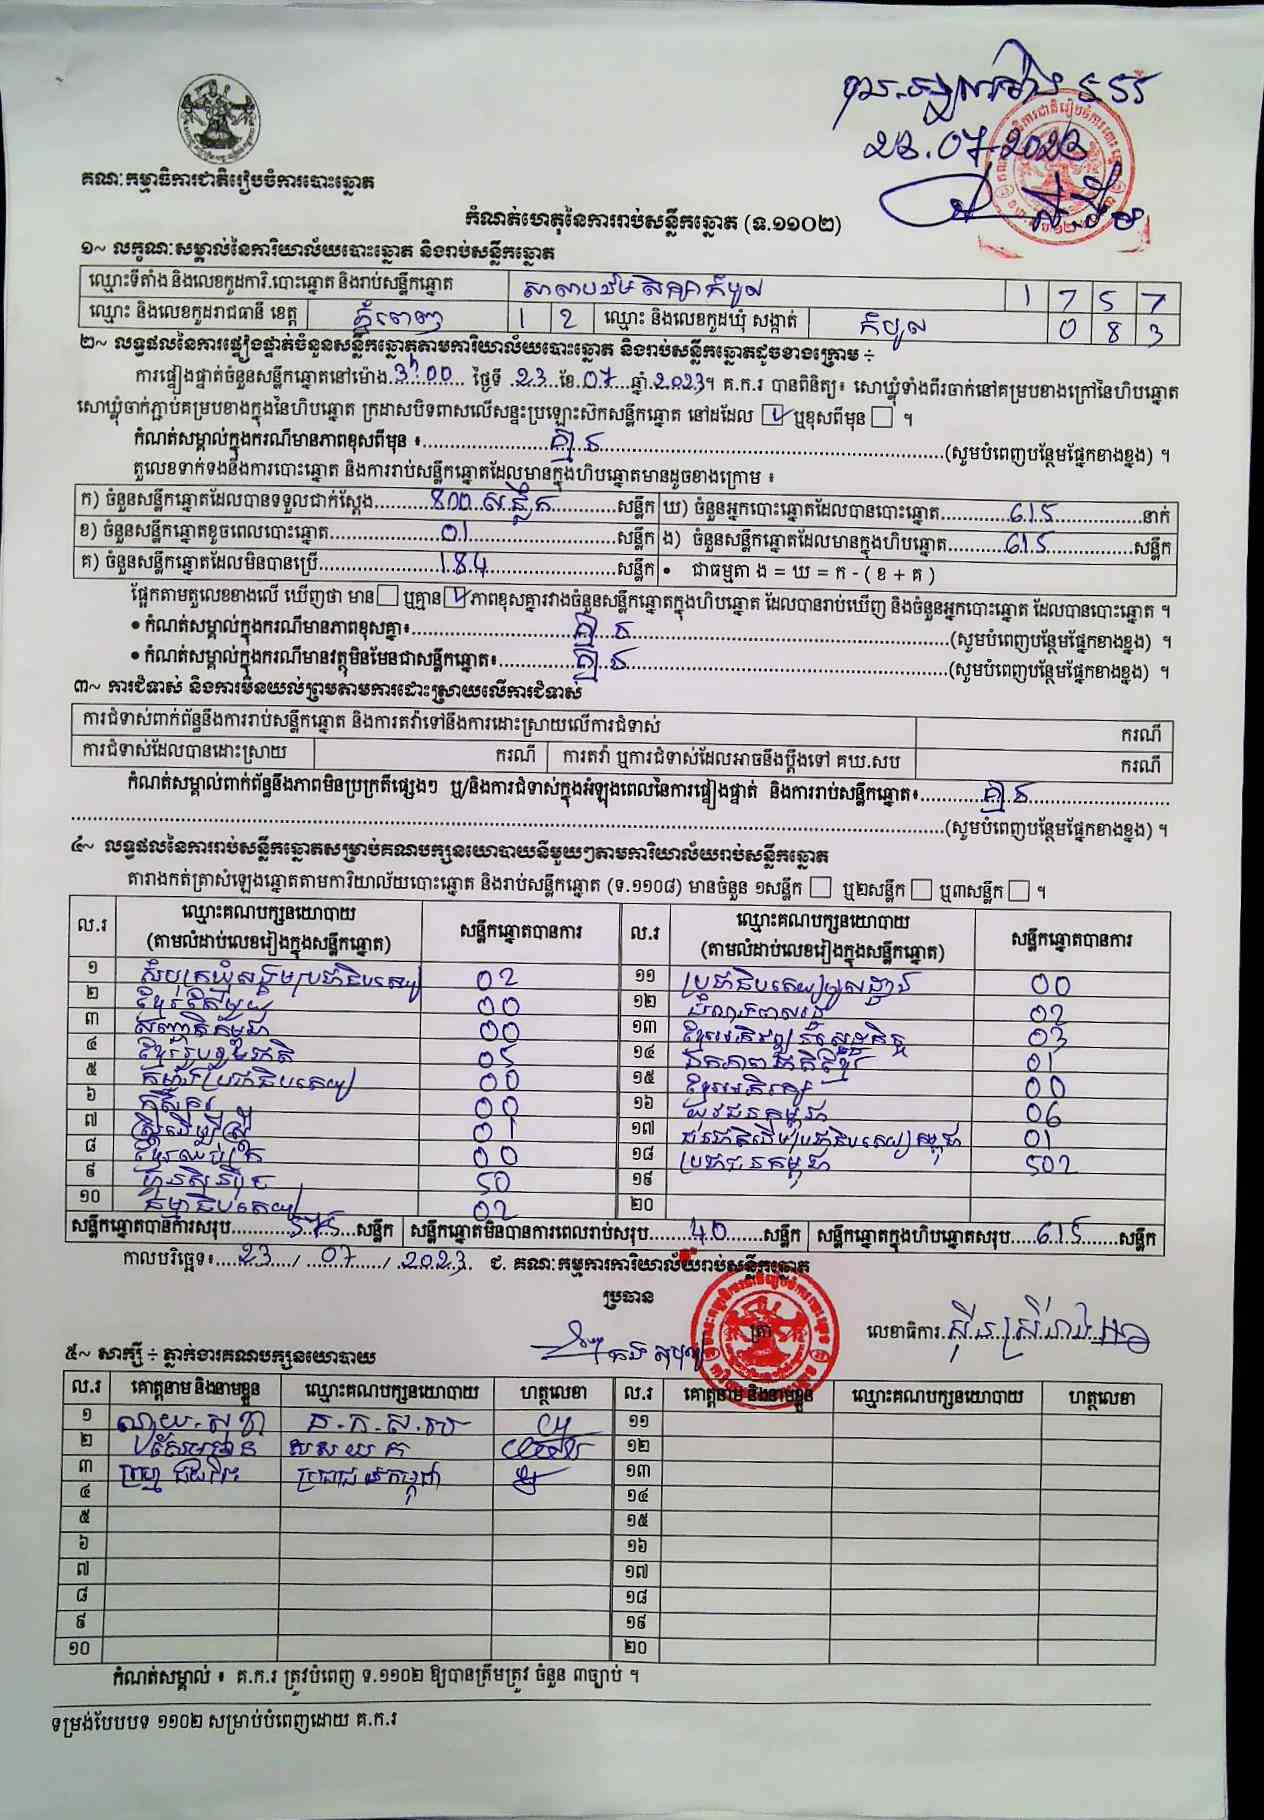 26.07.2023
គណៈកម្មាធិការជាតិរៀបចំការបោះឆ្នោត
កំណត់ហេតុនៃការរាប់សន្លឹកឆ្នោត (ទ.១១០២)
១~ លក្ខណៈសម្គាល់នៃការិយាល័យបោះឆ្នោត និងរាប់សន្លឹកឆ្នោត
ឈ្មោះទីតាំង និងលេខកូដការិ.បោះឆ្នោត និងរាប់សន្លឹកឆ្នោត សាលាបឋមសិក្សាកំបូល 1 7 5 7
ឈ្មោះ និងលេខកូដរាជធានី ខេត្ត ភ្នំពេញ 1 2 ឈ្មោះ និងលេខកូដឃុំ សង្កាត់ កំបូល 0 8 3
២~ លទ្ធផលនៃការផ្ទៀងផ្ទាត់ចំនួនសន្លឹកឆ្នោតតាមការិយាល័យបោះឆ្នោត និងរាប់សន្លឹកឆ្នោតដូចខាងក្រោម ÷
ការផ្ទៀងផ្ទាត់ចំនួនសន្លឹកឆ្នោតនៅម៉ោង 3h00 ថ្ងៃទី 23 ខែ 07 ឆ្នាំ 2023។ គ.ក.រ បានពិនិត្យ៖ សោឃ្លុំទាំងពីរចាក់នៅគម្របខាងក្រៅនៃហិបឆ្នោត
សោឃ្លុំចាក់ភ្ជាប់គម្របខាងក្នុងនៃហិបឆ្នោត ក្រដាសបិទពាសលើសន្ទះប្រឡោះស៊កសន្លឹកឆ្នោត នៅដដែល ☑ ឬខុសពីមុន ☐ ។
កំណត់សម្គាល់ក្នុងករណីមានភាពខុសពីមុន ៖ គ្មាន (សូមបំពេញបន្ថែមផ្នែកខាងខ្នង) ។
តួលេខទាក់ទងនឹងការបោះឆ្នោត និងការរាប់សន្លឹកឆ្នោតដែលមានក្នុងហិបឆ្នោតមានដូចខាងក្រោម ៖
ក) ចំនួនសន្លឹកឆ្នោតដែលបានទទួលជាក់ស្តែង 800 សន្លឹក សន្លឹក ឃ) ចំនួនអ្នកបោះឆ្នោតដែលបានបោះឆ្នោត 615 នាក់
ខ) ចំនួនសន្លឹកឆ្នោតខូចពេលបោះឆ្នោត 01 សន្លឹក ង) ចំនួនសន្លឹកឆ្នោតដែលមានក្នុងហិបឆ្នោត 615 សន្លឹក
គ) ចំនួនសន្លឹកឆ្នោតដែលមិនបានប្រើ 184 សន្លឹក • ជាធម្មតា ង = ឃ = ក - ( ខ + គ )
ផ្អែកតាមតួលេខខាងលើ ឃើញថា មាន ☐ ឬគ្មាន ☑ ភាពខុសគ្នារវាងចំនួនសន្លឹកឆ្នោតក្នុងហិបឆ្នោត ដែលបានរាប់ឃើញ និងចំនួនអ្នកបោះឆ្នោត ដែលបានបោះឆ្នោត ។
• កំណត់សម្គាល់ក្នុងករណីមានភាពខុសគ្នា៖ គ្មាន (សូមបំពេញបន្ថែមផ្នែកខាងខ្នង) ។
• កំណត់សម្គាល់ក្នុងករណីមានវត្ថុមិនមែនជាសន្លឹកឆ្នោត៖ គ្មាន (សូមបំពេញបន្ថែមផ្នែកខាងខ្នង) ។
៣~ ការជំទាស់ និងការមិនយល់ព្រមតាមការដោះស្រាយលើការជំទាស់
ការជំទាស់ពាក់ព័ន្ធនឹងការរាប់សន្លឹកឆ្នោត និងការតវ៉ាទៅនឹងការដោះស្រាយលើការជំទាស់ ករណី
ការជំទាស់ដែលបានដោះស្រាយ ករណី ការតវ៉ា ឬការជំទាស់ដែលអាចនឹងប្តឹងទៅ គឃ.សប ករណី
កំណត់សម្គាល់ពាក់ព័ន្ធនឹងភាពមិនប្រក្រតីផ្សេងៗ ឬ/និងការជំទាស់ក្នុងអំឡុងពេលនៃការផ្ទៀងផ្ទាត់ និងការរាប់សន្លឹកឆ្នោត៖ គ្មាន
(សូមបំពេញបន្ថែមផ្នែកខាងខ្នង) ។
៤~ លទ្ធផលនៃការរាប់សន្លឹកឆ្នោតសម្រាប់គណបក្សនយោបាយនីមួយៗតាមការិយាល័យរាប់សន្លឹកឆ្នោត
តារាងកត់ត្រាសំឡេងឆ្នោតតាមការិយាល័យបោះឆ្នោត និងរាប់សន្លឹកឆ្នោត (ទ.១១០៨) មានចំនួន ១សន្លឹក ☐ ឬ២សន្លឹក ☐ ឬ៣សន្លឹក ☐ ។
ល.រ ឈ្មោះគណបក្សនយោបាយ (តាមលំដាប់លេខរៀងក្នុងសន្លឹកឆ្នោត) សន្លឹកឆ្នោតបានការ ល.រ ឈ្មោះគណបក្សនយោបាយ (តាមលំដាប់លេខរៀងក្នុងសន្លឹកឆ្នោត) សន្លឹកឆ្នោតបានការ
១ សំបុកឃ្មុំសង្គមប្រជាធិបតេយ្យ 02 ១១ ប្រជាធិបតេយ្យមូលដ្ឋាន 00
២ ខ្មែរតែមួយ 00 ១២ ដំណោះស្រាយ 02
៣ សញ្ជាតិកម្ពុជា 00 ១៣ ខ្មែរអភិវឌ្ឍន៍សេដ្ឋកិច្ច 03
៤ ខ្មែររួបរួមជាតិ 05 ១៤ ឯកភាពជាតិខ្មែរ 01
៥ កម្លាំងប្រជាធិបតេយ្យ 00 ១៥ ខ្មែរអភិរក្ស 00
៦ កសិករ 00 ១៦ យុវជនកម្ពុជា 06
៧ ស្ត្រីដើម្បីស្ត្រី 01 ១៧ ជនជាតិដើមប្រជាធិបតេយ្យកម្ពុជា 01
៨ ខ្មែរឈប់ក្រ 00 ១៨ ប្រជាជនកម្ពុជា 502
៩ ហ៊្វុនស៊ិនប៉ិច 50 ១៩
១០ ធម្មាធិបតេយ្យ 02 ២០
សន្លឹកឆ្នោតបានការសរុប 575 សន្លឹក សន្លឹកឆ្នោតមិនបានការពេលរាប់សរុប 40 សន្លឹក សន្លឹកឆ្នោតក្នុងហិបឆ្នោតសរុប 615 សន្លឹក
កាលបរិច្ឆេទ៖ 23 / 07 / 2023. ជ. គណៈកម្មការការិយាល័យរាប់សន្លឹកឆ្នោត
ប្រធាន
ត្រា
លេខាធិការ
៥~ សាក្សី ÷ ភ្នាក់ងារគណបក្សនយោបាយ
ល.រ គោត្តនាម និងនាមខ្លួន ឈ្មោះគណបក្សនយោបាយ ហត្ថលេខា ល.រ គោត្តនាម និងនាមខ្លួន ឈ្មោះគណបក្សនយោបាយ ហត្ថលេខា
១ ១១
២ ស ស យ ក ១២
៣ ប្រជាជនកម្ពុជា ១៣
៤ ១៤
៥ ១៥
៦ ១៦
៧ ១៧
៨ ១៨
៩ ១៩
១០ ២០
កំណត់សម្គាល់ ៖ គ.ក.រ ត្រូវបំពេញ ទ.១១០២ ឱ្យបានត្រឹមត្រូវ ចំនួន ៣ច្បាប់ ។
ទម្រង់បែបបទ ១១០២ សម្រាប់បំពេញដោយ គ.ក.រ